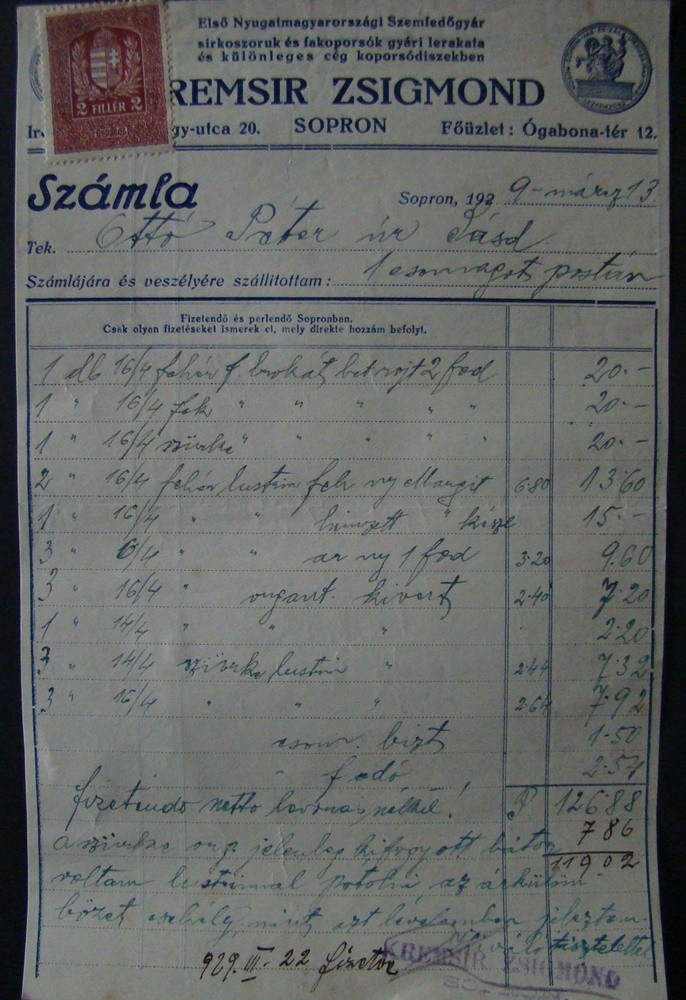 Első Nyugatmagyarországi Szemfedőgyár
sirkoszoruk és fakoporsók gyári lerakata
és különleges cég koporsódiszekben
REMSIR ZSIGMOND
2 FILLÉR 2
gy-utca 20. SOPRON Főüzlet: Ógabona-tér 12.
Számla
Sopron, 192 9 - márcz 13.
Tek. Ottó Péter úr Sásd
Számlájára és veszélyére szállitottam: 1 csomagot postán
Fizetendő és perlendő Sopronban.
Csak olyan fizetéseket ismerek el, mely direkte hozzám befolyt.
1 db 16/4 fehér f. brokát 2 fod 20.-
1 " 16/4 fek " " " " " 20.-
1 " 16/4 szürke " " " " " 20.-
2 " 16/4 fehér lustrin feh ny Margit 6.80 13.60
1 " 16/4 " " " 15.-
3 " 6/4 " " ar ny 1 fod 3.20 9.60
3 " 16/4 " organt. kivert 2.40 7.20
1 " 14/4 " " " 2.20
3 " 14/4 szürke lustrin " 2.44 7.32
3 " 16/4 " " " 2.64 7.92
csom. bizt 1.50
2.54
fizetendo netto levonás nélkül! P 126.88
7 86
a szürke org. jelenleg kifogyott bátor 119 02
voltam lustrinnal potolni az árkülöm-
bözet csekély, mint ezt levelemben jeleztem.
tisztelettel
929. III. 22 fizetve
KREMSIR ZSIGMOND